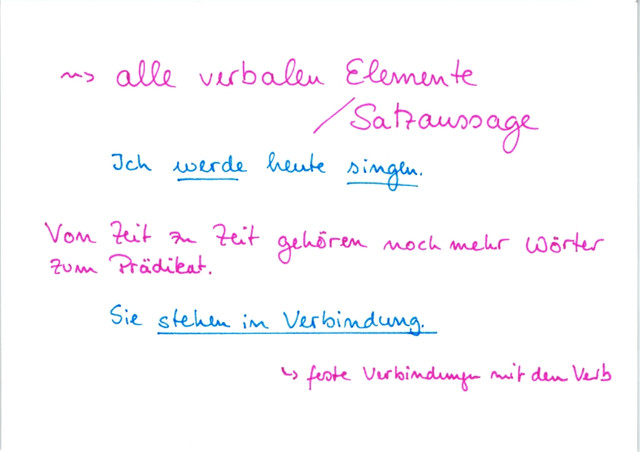 ~> alle verbalen Elemente
/Satzaussage
Ich werde heute singen.
Von Zeit zu Zeit gehören noch mehr Wörter
zum Prädikat.
Sie stehen in Verbindung.
↳ feste Verbindungen mit dem Verb